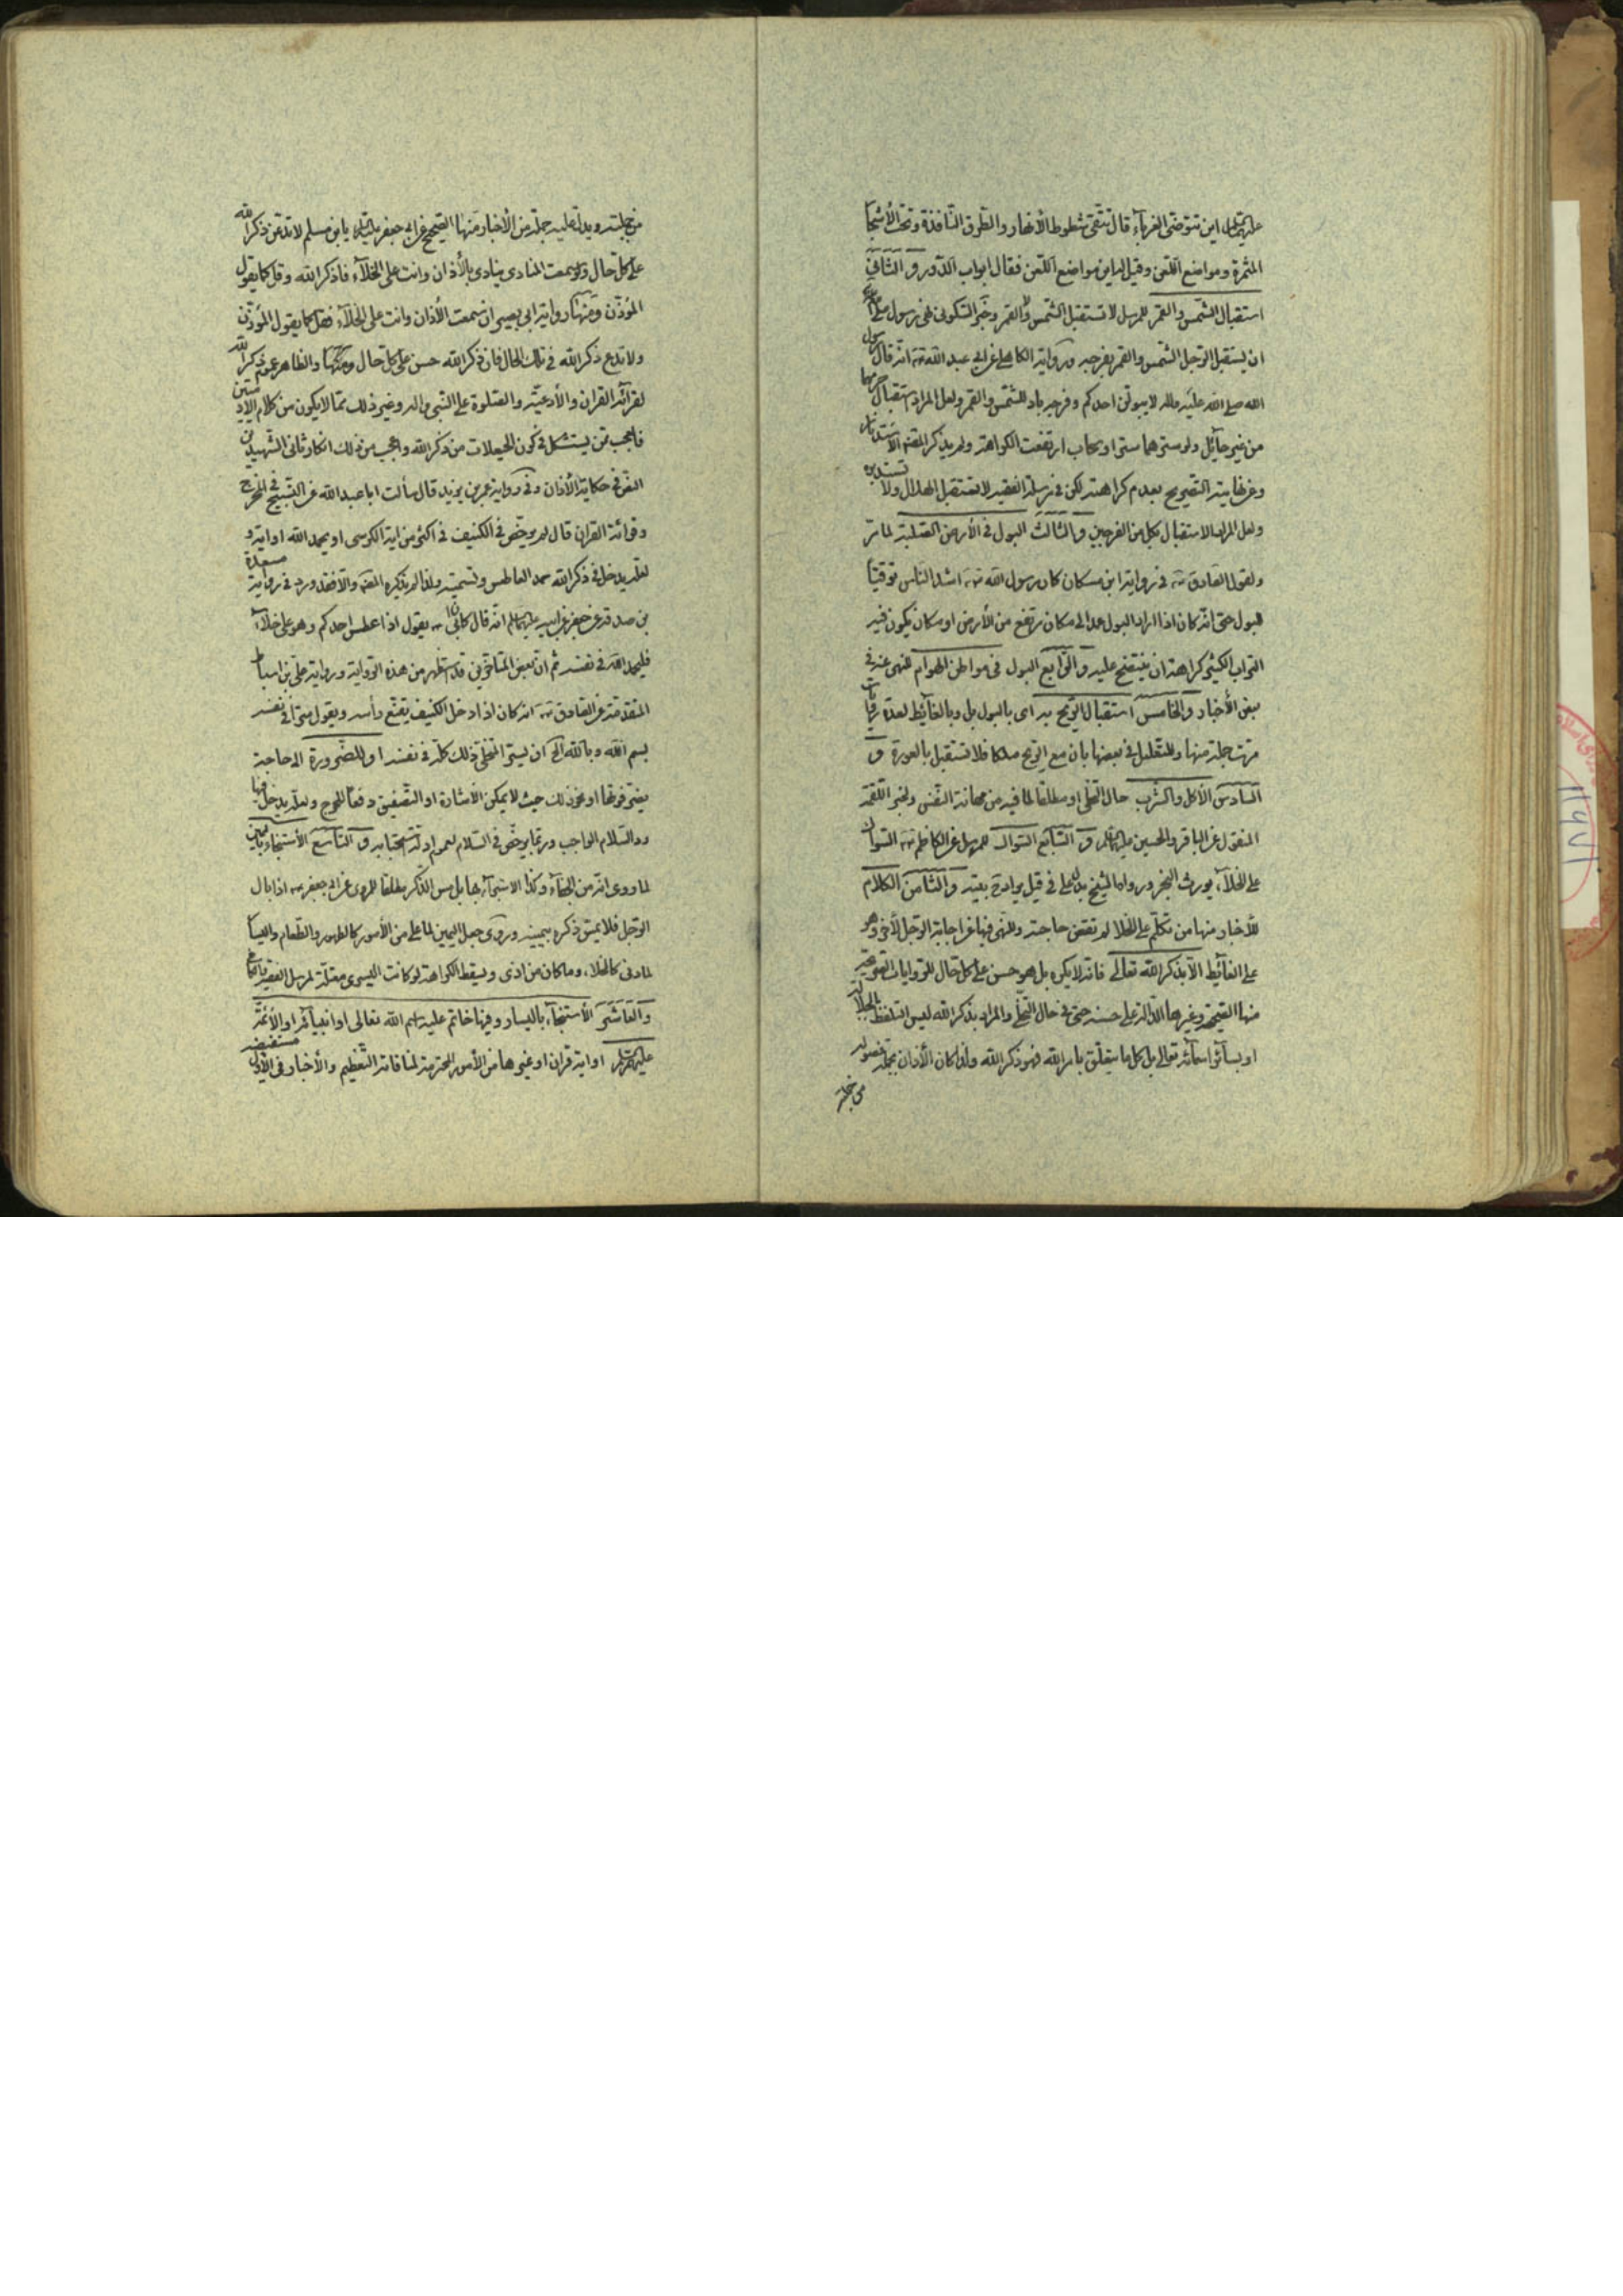 عليه السلام اين تتوضى الغرباء قال تتقى شطوط الأنهار والطرق النافذة وتحت الأشجار
المثمرة ومواضع اللعن وقيل له اين مواضع اللعن فقال ابواب الدور و الثاني
استقبال الشمس والقمر للمرسل لا تستقبل الشمس ولا القمر وخبر السكونى نهى رسول الله
ان يستقبل الرجل الشمس والقمر بفرجه ورواية الكاهلى عن ابى عبد الله انه قال رسول
الله صلى الله عليه واله لا يبولن احدكم وفرجه باد للشمس والقمر ولعل المراد استقبال
من غير حائل ولو سترهما ستر او سحاب ارتفعت الكراهة ولم يذكر المقنعة الاستدبار
وعن نهاية التصريح بعدم كراهته لكن في مرسلة الفقيه لا تستقبل الهلال ولا تستدبره
ولعل المراد الاستقبال بكل من الفرجين والثالث البول في الأرض الصلبة لما مر
ولقول الصادق في رواية ابن مسكان كان رسول الله اشد الناس توقيا
للبول حتى انه كان اذا اراد البول عمد الى مكان مرتفع من الأرض او مكان يكون فيه
التراب الكثير كراهة ان ينتضح عليه والرابع البول في مواطن الهوام للنهى عنه في
بعض الأخبار والخامس استقبال الريح به اى بالبول بل وبالغائط لعدة روايات
مرت جملة منها وللتعليل في بعضها بان مع الريح ملكا فلا تستقبل بالعورة و
السادس الأكل والشرب حال التخلى او مطلقا لما فيه من مهانة النفس ولخبر اللقمة
المنقول عن الباقر والحسين عليهما السلام و السابع السواك للمرسل عن الكاظم السواك
على الخلاء يورث البخر ورواها الشيخ والثامن الكلام
للأخبار منها من تكلم على الخلا لم تقض حاجته وللنهى فيها عن اجابة الرجل لأخر وهو
على الغائط الا بذكر الله تعالى فانه لا يكره بل هو حسن على كل حال للروايات
منها الصحيحة وغيرها الدالة على حسنه حتى في حال التخلى والمراد بذكر الله ليس التلفظ بالجلالة
او بسائر اسمائه تعالى بل كل ما يتعلق بامر الله فهو ذكر الله ولذا كان الأذان بجملة فصوله
من جملته
من جملته ويدل عليه جملة من الأخبار منها الصحيح عن ابى جعفر عليه السلام يا ابن مسلم لا تدعن ذكر الله
على كل حال ولو سمعت المنادى ينادى بالأذان وانت على الخلاء فاذكر الله وقل كما يقول
المؤذن ومنها رواية ابى بصير ان سمعت الأذان وانت على الخلاء فقل كما يقول المؤذن
ولا تدع ذكر الله في تلك الحال فان ذكر الله حسن على كل حال والظاهر عموم ذكر الله
لقرائة القران والأدعية والصلوة على النبى واله وغير ذلك مما لا يكون من كلام الادميين
فاعجب ممن يستشكل في كون الحيعلات من ذكر الله واعجب من ذلك انكار ثانى الشهيدين
النص في حكاية الأذان وفى رواية عمر بن يزيد قال سألت ابا عبد الله عن التسبيح في المخرج
وقرائة القران قال لم يرخص في الكنيف في اكثر من اية الكرسى او يحمد الله او اية و
لعله يدخل في ذكر الله حمد العاطس وتسميته ولذا لم يذكره المقنعة والا فقد ورد في رواية مسعدة
بن صدقة عن جعفر عن ابيه عليهما السلام انه قال كان ابى يقول اذا عطس احدكم وهو على خلاء
فليحمد الله في نفسه ثم ان بعض المتأخرين قد استظهر من هذه الرواية ورواية على بن اسباط
المتقدمة عن الصادق انه كان اذا دخل الكنيف يقنع رأسه ويقول سرا في نفسه
بسم الله وبالله الخ ان يسر المتخلى ذلك كله في نفسه او للضرورة الى حاجة
يضر فوتها او نحو ذلك حيث لا يمكن الأشارة او التصفيق دفعا للحرج ولعله يدخل فيها
رد السلام الواجب وربما يرخص في السلام لعموم ادلة استحبابه و التاسع الأستنجاء باليمين
لما روى انه من الجفاء وكذا الاستبراء بها بل مس الذكر مطلقا للمروى عن ابى جعفر اذا بال
الرجل فلا يمس ذكره بيمينه وروى جعل اليمين لما على من الأمور كالطهور والطعام واليسار
لما دنى كالخلاء وما كان من اذى ويسقط الكراهة لو كانت اليسرى معتلة لمرسل الفقيه
والعاشر الأستنجاء باليسار وفيها خاتم عليه اسم الله تعالى او انبيائه او الأئمة
عليهم السلام او اية قران او غيرها من الأمور المحترمة لمنافاته التعظيم والأخبار في الأول مستفيضة